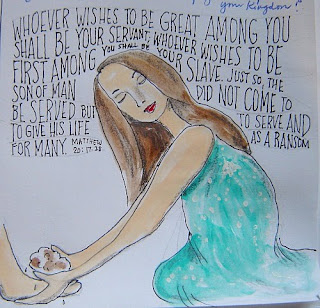 your Kingdom
WHOEVER WISHES TO BE GREAT AMONG YOU
SHALL BE YOUR SERVANT; WHOEVER WISHES TO BE
FIRST AMONG YOU SHALL BE YOUR SLAVE. JUST SO, THE
SON OF MAN DID NOT COME TO
BE SERVED BUT TO SERVE AND
TO GIVE HIS LIFE AS A RANSOM
FOR MANY. MATTHEW
20:17-28